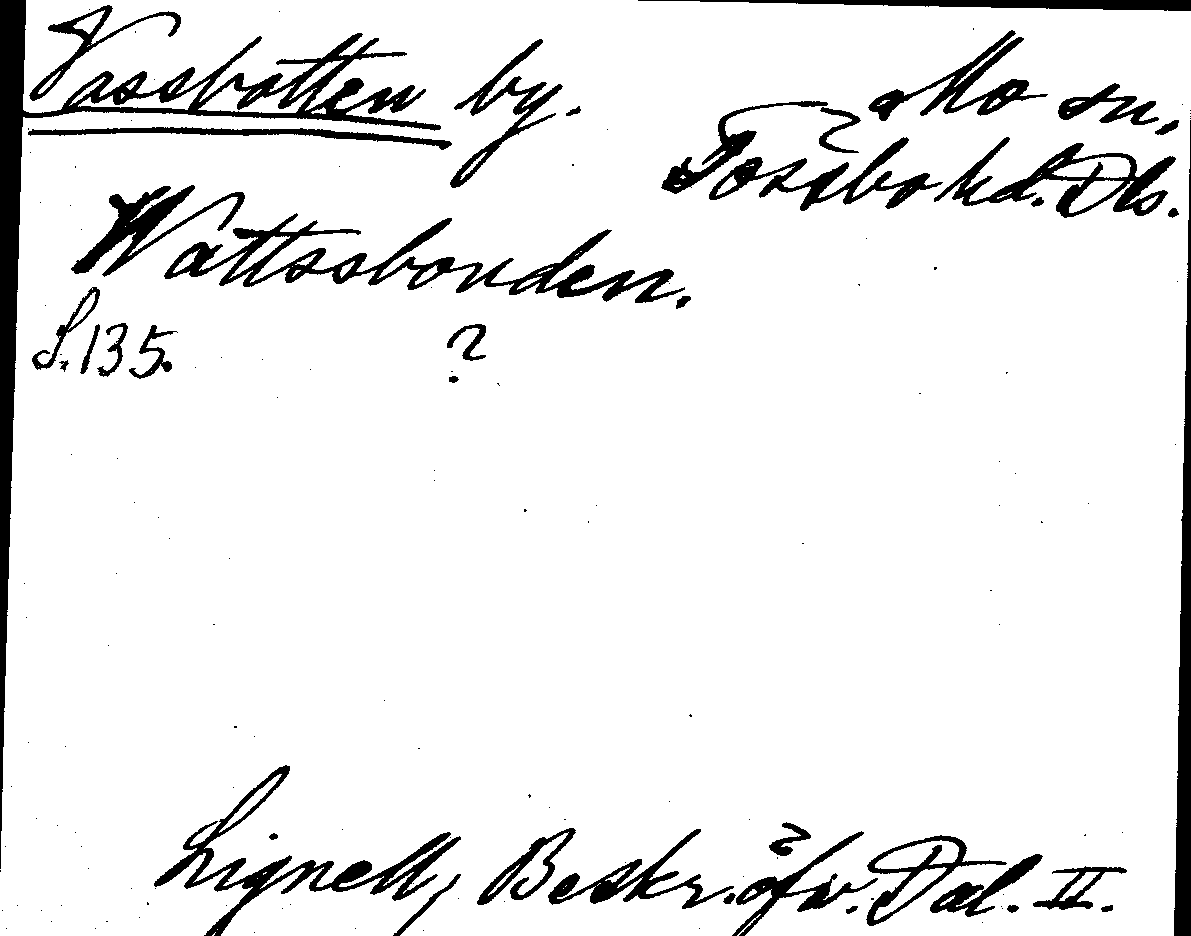 Vassbotten by.
Mo sn,
Tössbo hd. Dls.
Wattssbonden.
S. 135. ?
Lignell, Beskr. öfv. Dal. II.